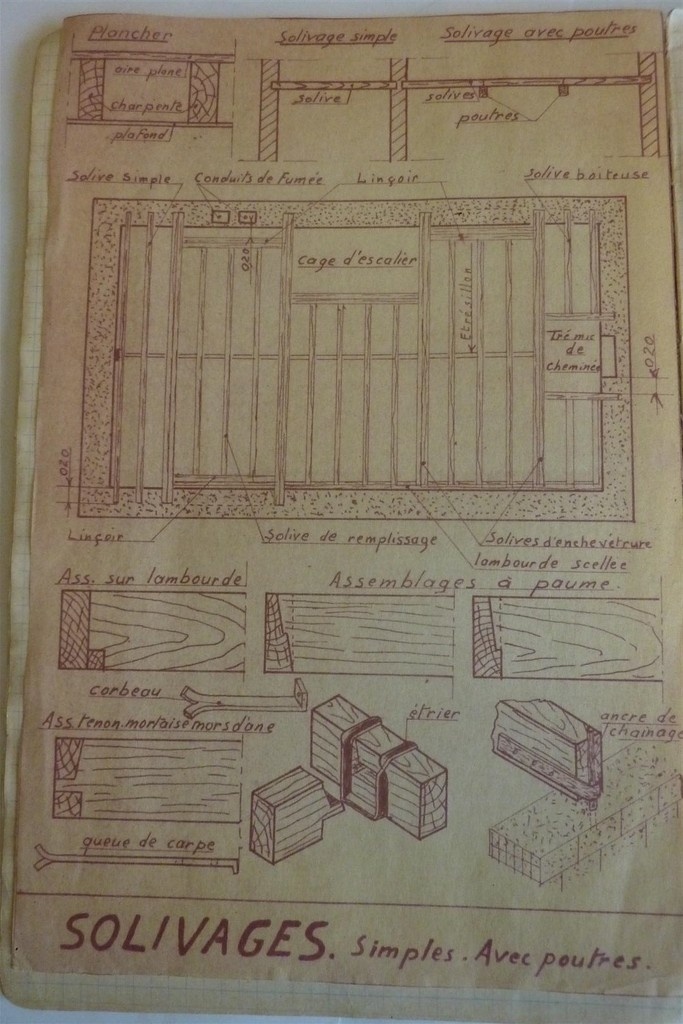 Plancher
Solivage simple
Solivage avec poutres
aire plane
charpente
plafond
solive
solives
poutres
Solive simple
Conduits de Fumée
Linçoir
Solive boiteuse
Cage d'escalier
020
Etrésillon
Trémie
de
cheminée
020
020
Linçoir
Solive de remplissage
Solives d'enchevêtrure
lambourde scellée
Ass. sur lambourde
Assemblages à paume.
corbeau
Ass. tenon.mortaise mors d'âne
étrier
ancre de
chainage
queue de carpe
SOLIVAGES. Simples. Avec poutres.